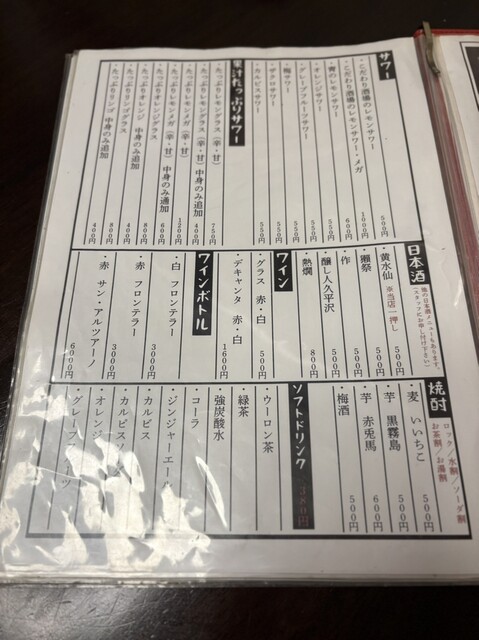 サワー
・こだわり酒場のレモンサワー 500円
・こだわり酒場のレモンサワー・メガ 1000円
・翠のレモンサワー 600円
・オレンジサワー 550円
・グレープフルーツサワー 550円
・梅サワー 550円
・ザクロサワー 550円
・カルピスサワー 550円
果汁たっぷりサワー
・たっぷりレモングラス（辛・甘） 750円
・たっぷりレモングラス（辛・甘）中身のみ追加 400円
・たっぷりレモンメガ（辛・甘） 1200円
・たっぷりレモンメガ（辛・甘）中身のみ追加 800円
・たっぷりオレンジグラス 600円
・たっぷりオレンジ 中身のみ追加 400円
・たっぷりリンゴグラス 800円
・たっぷりリンゴ 中身のみ追加 400円
日本酒
他の日本酒メニューもあります。
（スタッフにお申し付け下さい）
・黄水仙 ※当店一押し 500円
・獺祭 500円
・作 500円
・醸し人久平沢 500円
・熱燗 800円
ワイン
・グラス 赤・白 500円
・デキャンタ 赤・白 1600円
ワインボトル
・白 フロンテラー 3000円
・赤 フロンテラー 3000円
・赤 サン・アルツアーノ 6000円
焼酎
ロック／水割／ソーダ割
お茶割／お湯割
・麦 いいちこ 500円
・芋 黒霧島 500円
・芋 赤兎馬 600円
・梅酒 500円
ソフトドリンク 380円
・ウーロン茶
・緑茶
・強炭酸水
・コーラ
・ジンジャーエール
・カルピス
・カルピスソーダ
・オレンジ
・グレープフルーツ